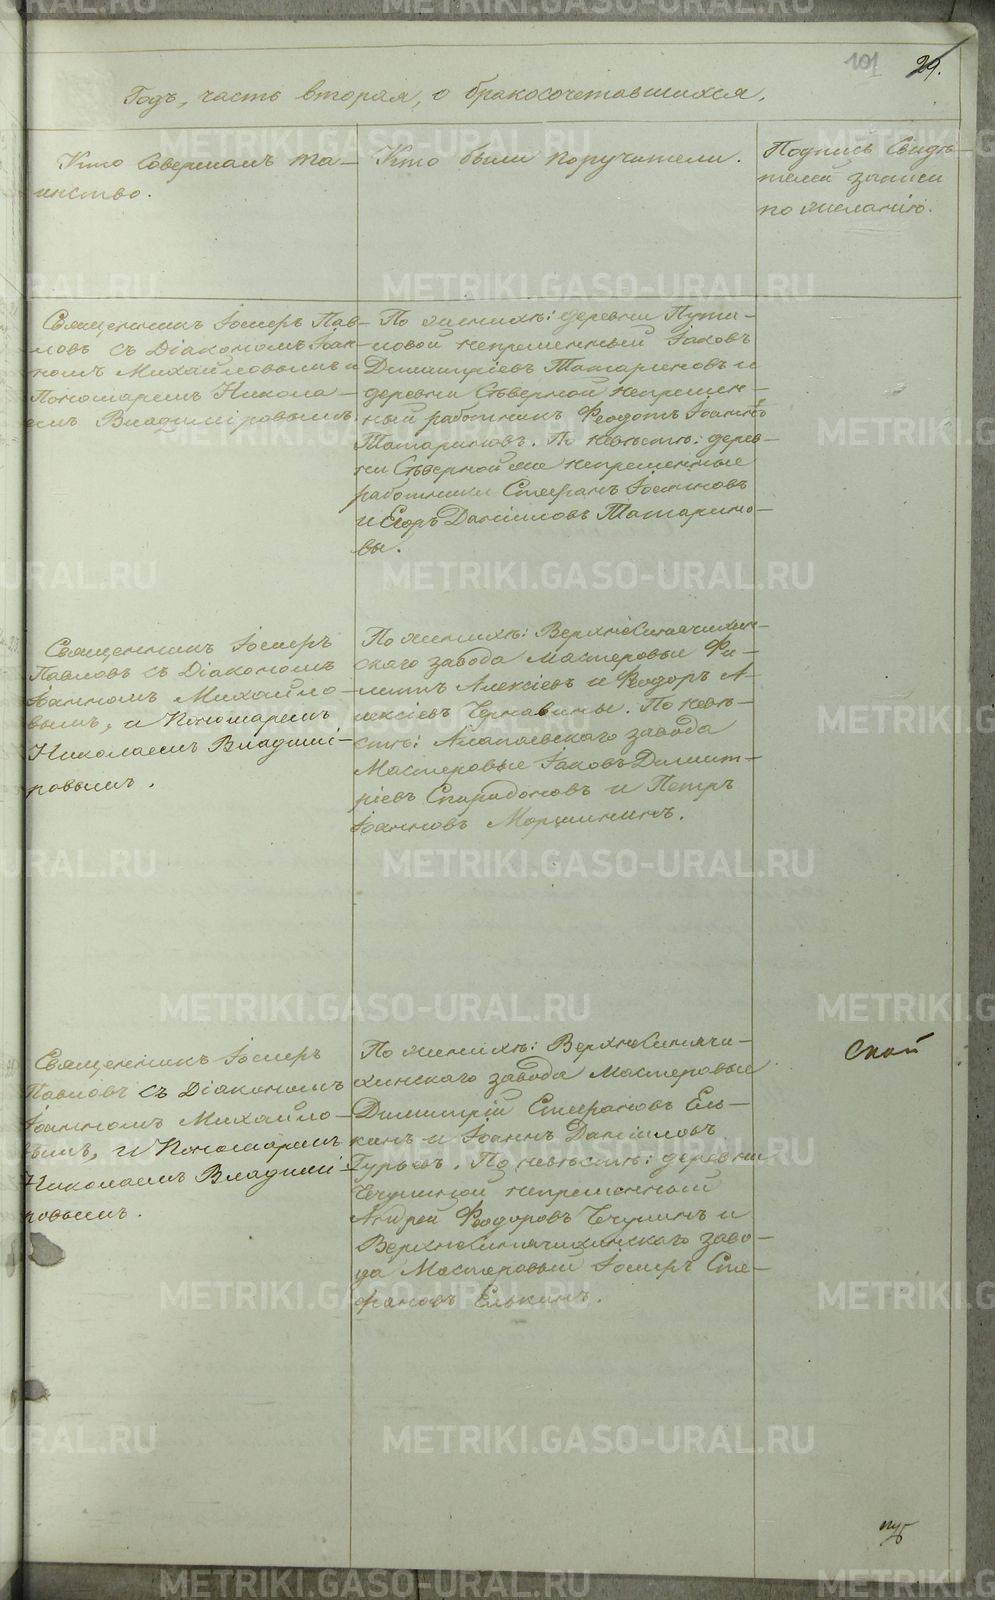 101 29.
Годъ, часть вторая, о бракосочетавшихся.
Кто Совершалъ та-
инство.
Кто были поручители.
Подпись Свидѣ-
телей записи
по желанію.
Священникъ Іосифъ Пав-
ловъ съ Діакономъ Іоан-
номъ Михайловымъ и
Пономаремъ Никола-
емъ Владиміровымъ.
По женихѣ: деревни Пути-
ловой непремѣнный Іаковъ
Димитріевъ Татариновъ и
деревни Сѣверной непремѣн-
ный работникъ Ѳеодотъ Іоанновъ
Татариновъ. По невѣстѣ: дерев-
ни Сѣверной же непремѣнные
работники Стефанъ Іоанновъ
и Егоръ Даніиловъ Татарино-
вы.
Священникъ Іосифъ
Павловъ съ Діакономъ
Іоанномъ Михайло-
вымъ, и Пономаремъ
Николаемъ Владимі-
ровымъ.
По женихѣ: Верхнесинячихин-
скаго завода Мастеровые Фи-
липпъ Алексіевъ и Ѳеодоръ А-
лексіевъ Чернавины. По невѣ-
стѣ: Алапаевскаго завода
Мастеровые Іаковъ Димит-
ріевъ Спиридоновъ и Петръ
Іоанновъ Моршининъ.
Священникъ Іосифъ
Павловъ съ Діакономъ
Іоанномъ Михайло-
вымъ, и Пономаремъ
Николаемъ Владимі-
ровымъ.
По женихѣ: Верхнесинячи-
хинскаго завода Мастеровые
Димитрій Стефановъ Ель-
кинъ и Іоаннъ Даніиловъ
Гурьевъ. По невѣстѣ: деревни
Чечулиной непремѣнный
Андрей Ѳеодоровъ Чечулинъ и
Верхнесинячихинскаго заво-
да Мастеровый Іосифъ Сте-
фановъ Елькинъ.
Ской
METRIKI.GASO-URAL.RU